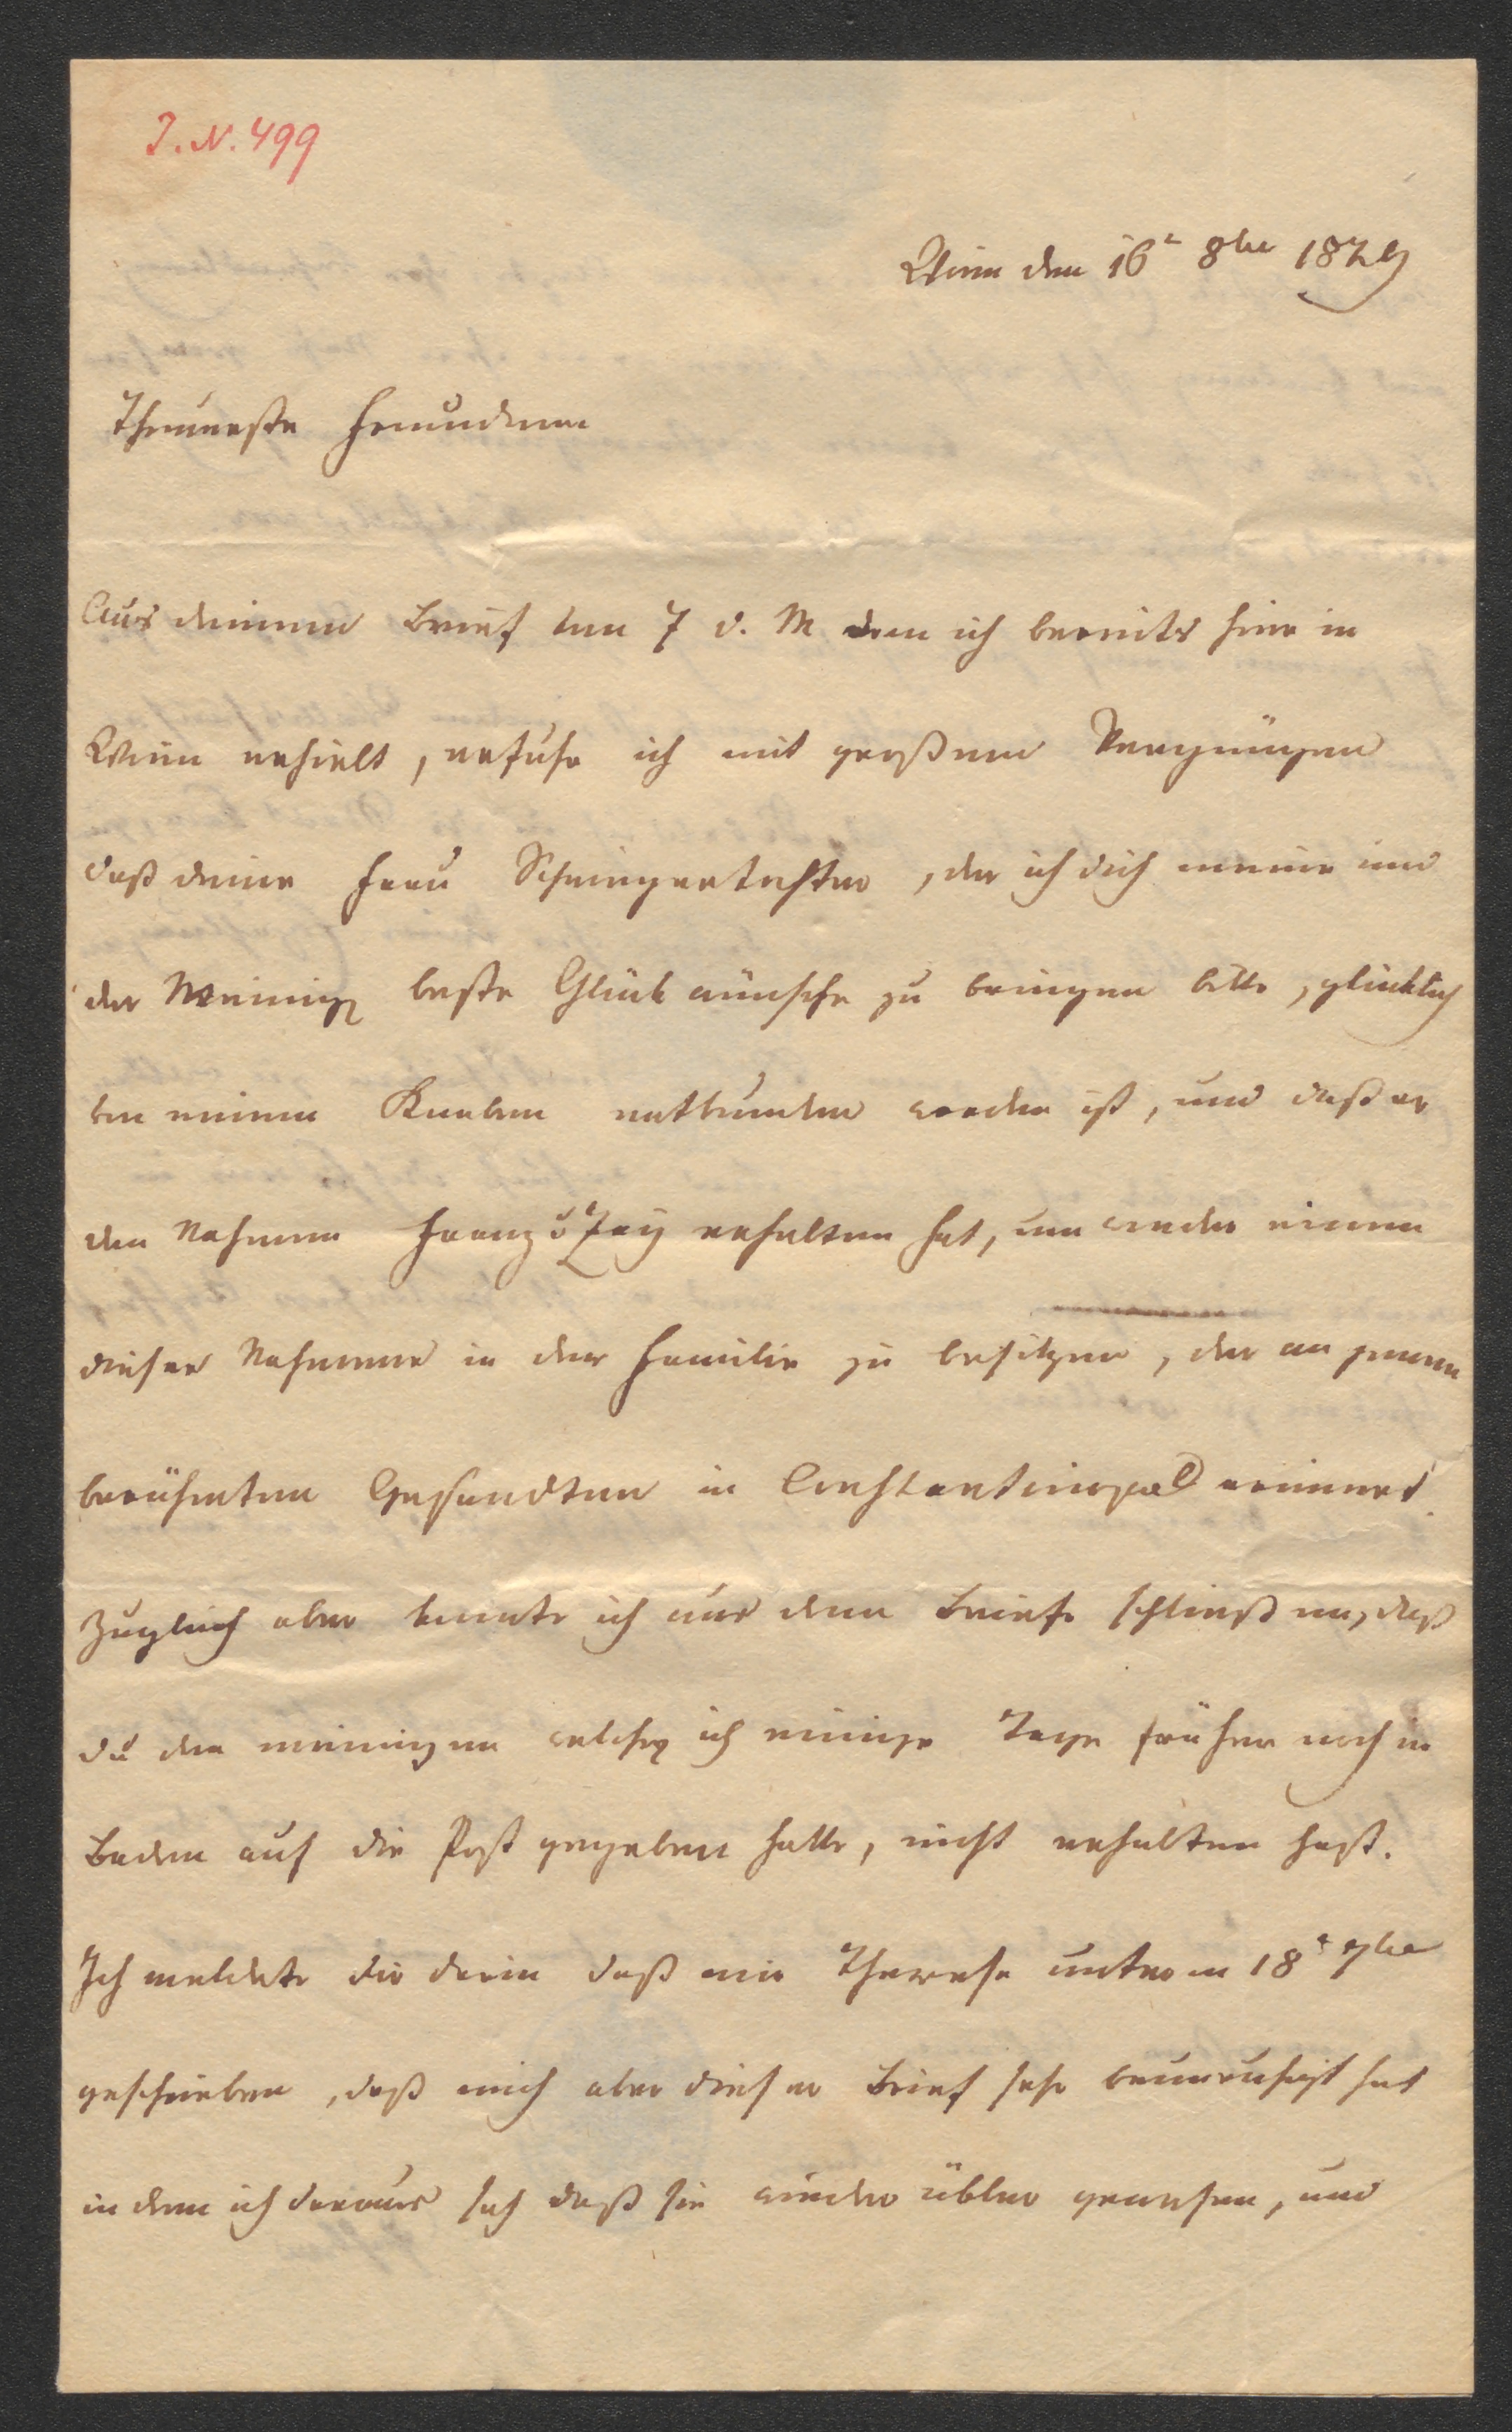 I. N. 499
Wien den 16t 8ber 1829
Theuerste Freundinn
Aus deinem Brief vom 7 d. M dem ich bereits hier in
Wien erhielt, erfuhr ich mit großem Vergnügen
daß deine Frau Schwiegertochter, der ich dich meine und
der Meinigen beste Glückwünsche zu bringen bitte, glücklich
von einem Knaben entbunden worden ist, und daß er
den Nahmen Franz v Zay erhalten hat, um wieder einen
dieses Nahmens in der Familie zu besitzen, der an jenen
berühmten Gesandten in Constantinopel erinnert.
Zugleich aber konnte ich aus dem Briefe schließen, daß
du den meinigen welchen ich einige Tage früher noch in
Baden auf die Post gegeben hatte, nicht erhalten hast.
Ich meldete dir darin daß mir Therese unterm 18t 7ber
geschrieben, daß mich aber dieser Brief sehr beunruhigt hat
in dem ich daraus sah daß sie wieder übler gewesen, und